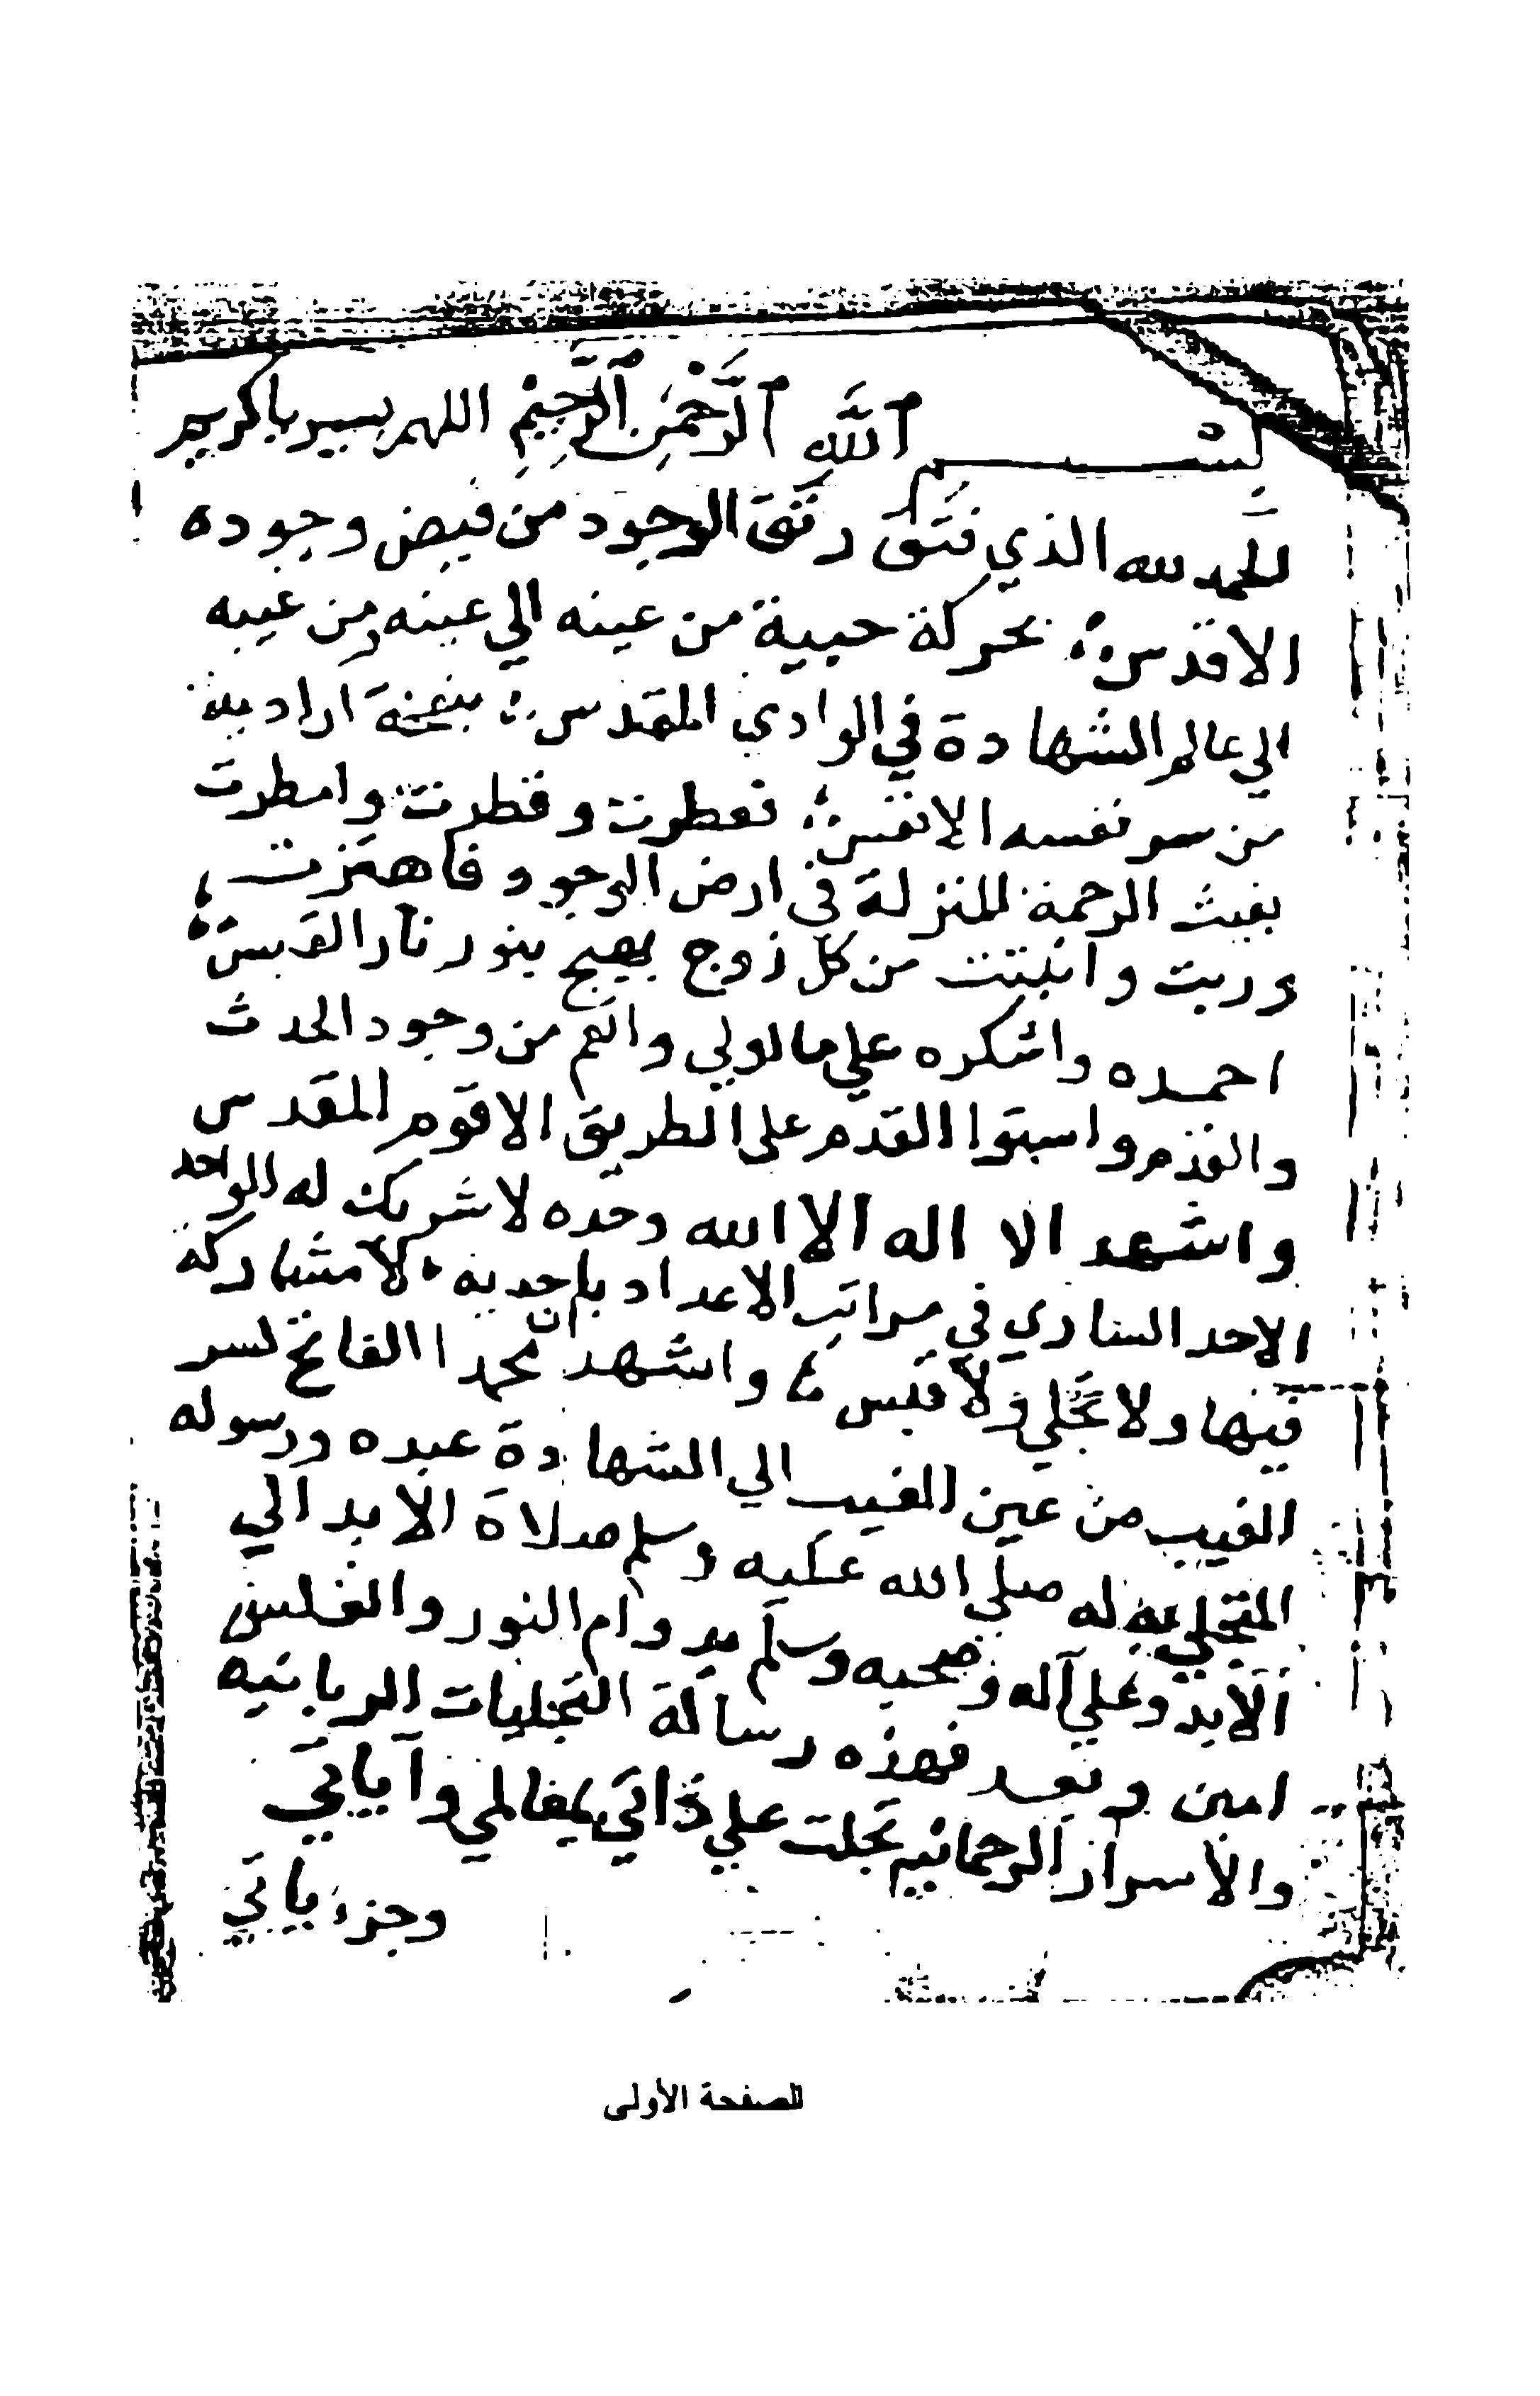 بسم الله الرحمن الرحيم اللهم يسر ياكريم
الحمد لله الذي فتق رتق الوجود من فيض وجوده
الاقدس بحركة حبية من عينه الي عينه ومن غيبه
الي عالم الشهادة في الوادي المقدس ارادية
من سر نفسه الانفس فعطرت وقطرت وامطرت
بغيث الرحمة المنزلة في ارض الوجود فاهتزت
وربت وانبتت من كل زوج بهيج بنور نار القبس
احمده واشكره علي ما اولي وانعم من وجود الحدث
والقدم واستوا القدم على الطريق الاقوم المقدس
واشهد الا اله الا الله وحده لا شريك له الواحد
الاحد الساري في مراتب الاعداد باحديه لا مشاركة
فيها ولا تجلي ولا قبس واشهد ان محمدا الفاتح لسر
الغيب من عين الغيب الي الشهادة عبده ورسوله
المتجلي به له صلي الله عليه وسلم صلاة الابد الي
الابد وعلي آله وصحبه وسلم بدوام النور والغلس
امين وبعد فهذه رسالة التجليات الربانيه
والاسرار الرحمانيه تجلت علي ذاتي بمعالمي وآياتي
وجزء ياتي
الصفحة الأولى